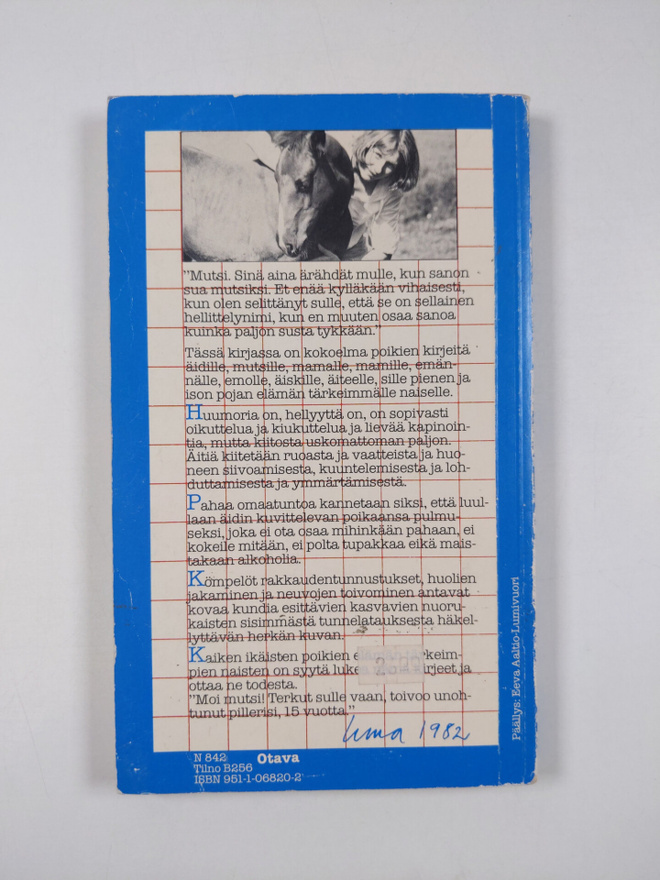 "Mutsi. Sinä aina ärähdät mulle, kun sanon
sua mutsiksi. Et enää kylläkään vihaisesti,
kun olen selittänyt sulle, että se on sellainen
hellittelynimi, kun en muuten osaa sanoa
kuinka paljon susta tykkään."
Tässä kirjassa on kokoelma poikien kirjeitä
äidille, mutsille, mamalle, mamille, emän-
nälle, emolle, äiskille, äiteelle, sille pienen ja
ison pojan elämän tärkeimmälle naiselle.
Huumoria on, hellyyttä on, on sopivasti
oikuttelua ja kiukuttelua ja lievää kapinoin-
tia, mutta kiitosta uskomattoman paljon.
Äitiä kiitetään ruoasta ja vaatteista ja huo-
neen siivoamisesta, kuuntelemisesta ja loh-
duttamisesta ja ymmärtämisestä.
Pahaa omaatuntoa kannetaan siksi, että luul-
laan äidin kuvittelevan poikaansa pulmu-
seksi, joka ei ota osaa mihinkään pahaan, ei
kokeile mitään, ei polta tupakkaa eikä mais-
takaan alkoholia.
Kömpelöt rakkaudentunnustukset, huolien
jakaminen ja neuvojen toivominen antavat
kovaa kundia esittävien kasvavien nuoru-
kaisten sisimmästä tunnelatauksesta häkel-
lyttävän herkän kuvan.
Kaiken ikäisten poikien rkeim-
pien naisten on syytä luke irjeet ja
ottaa ne todesta.
"Moi mutsi! Terkut sulle vaan, toivoo unoh-
tunut pillerisi, 15 vuotta."
1982
N 842 Otava
Tilno B256
ISBN 951-1-06820-2
Päällys: Eeva Aaltio-Lumivuori